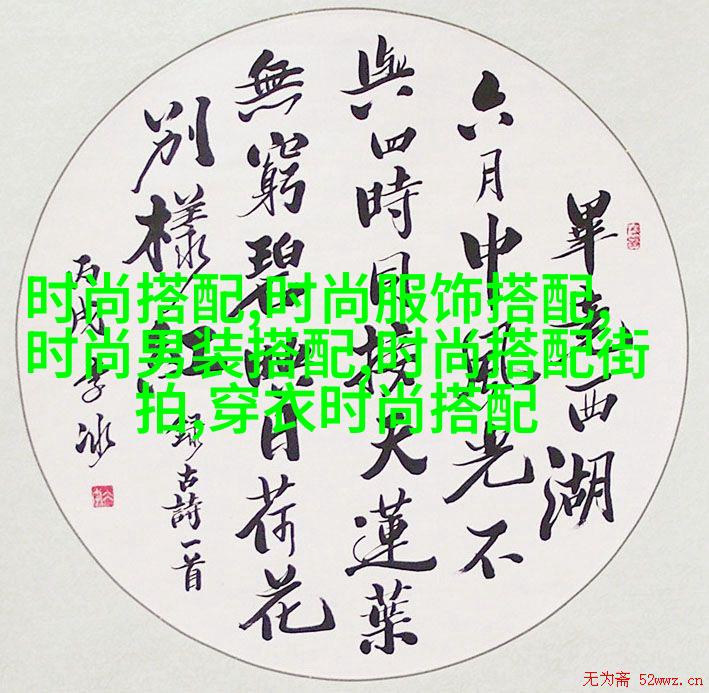 畢竟西湖
六月中風光不
與四時同接天蓮葉
無窮碧映日荷花
別樣紅
錄古詩一首
丙戌李冰
时尚搭配,时尚服饰搭配,
时尚男装搭配,时尚搭配街
拍,穿衣时尚搭配
无为斋 52wwz.cn